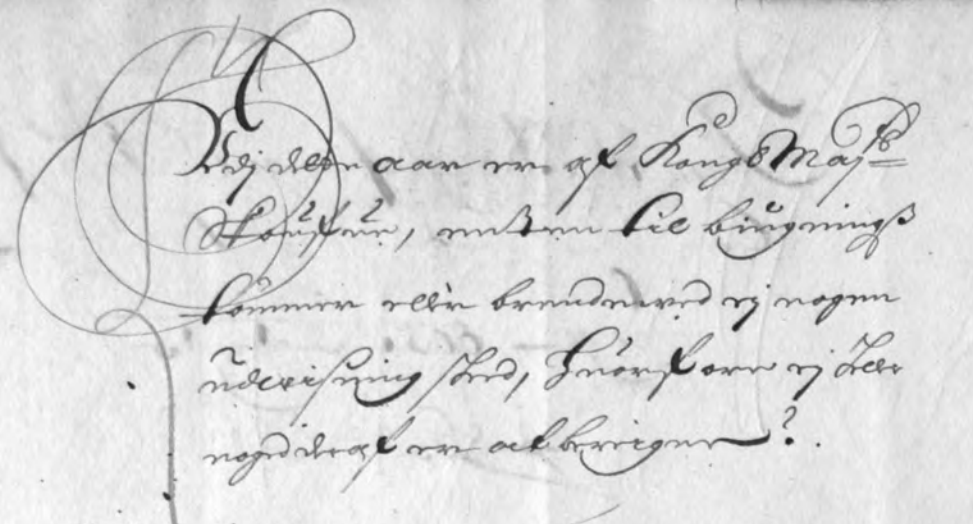 Udj dette aar er af Kongs Mayts
Skoufue, enten til biugnings
tømmer eller brendeved ej nogen
uduisning skeed, huorfore ej heller
noged deraf er at beregne.